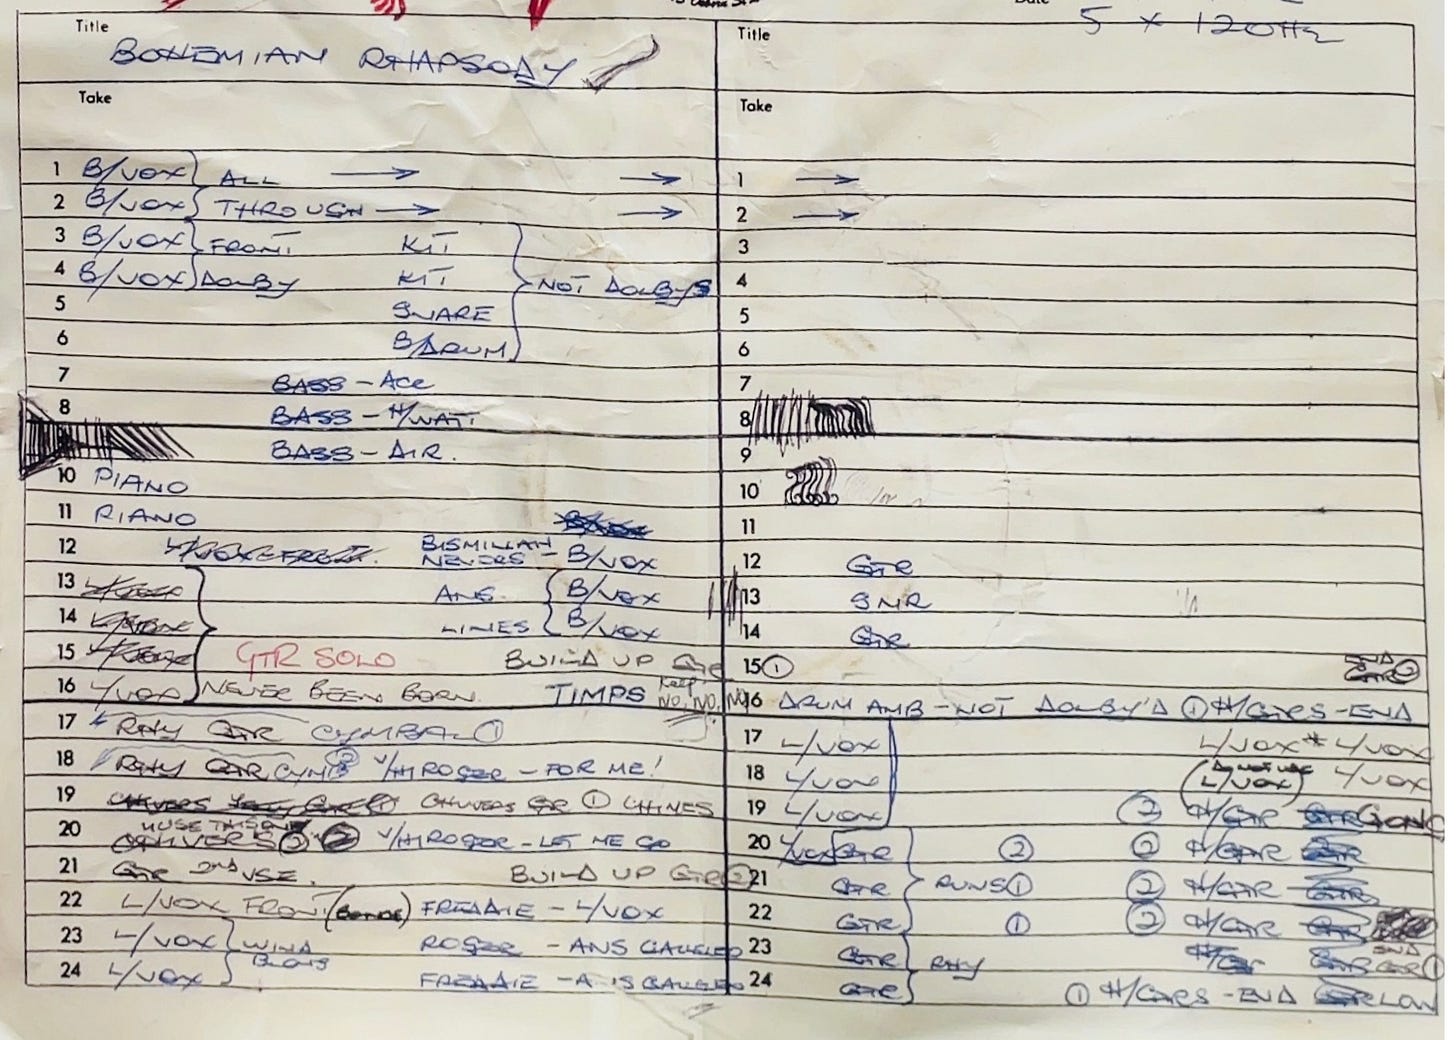 Title
BOHEMIAN RHAPSODY
Take
1 B/VOX ALL → →
2 B/VOX THROUGH → →
3 B/VOX FRONT KIT
4 B/VOX DOLBY KIT NOT DOLBYS
5 SNARE
6 B/DRUM
7 BASS - ACC
8 BASS - H/WATT
BASS - AIR.
10 PIANO
11 PIANO
12 BISMILLAH NEVERS - B/VOX
13 ANS. B/VOX
14 LINES B/VOX
15 GTR SOLO BUILD UP GTR
16 L/VOX NEVER BEEN BORN. TIMPS Keep NO, NO, NO
17 RHY GTR CYMBAL 1
18 RHY GTR CYMB 2 V/HI ROGER - FOR ME!
19 CHIVERS GTR 1 CHIMES
20 CHIVERS 2 V/HI ROGER - LET ME GO
21 GTR 2nd VSE. BUILD UP GTR 2
22 L/VOX FRONT FREDDIE - L/VOX
23 L/VOX WIND ROGER - ANS GALLILEO
24 L/VOX BLOWS FREDDIE - ANS GALLILEO
Date
5 x 120Hz
Title
Take
1 →
2 →
3
4
5
6
7
8
9
10
11
12 GTR
13 SNR
14 GTR
15 1 END GTR 2
16 DRUM AMB - NOT DOLBY'D 1 H/GTRS - END
17 L/VOX L/VOX * L/VOX
18 L/VOX (DO NOT USE L/VOX) L/VOX
19 L/VOX 2 H/GTR GONG
20 GTR 2 2 H/GTR
21 GTR RUNS 1 2 H/GTR
22 GTR 1 2 H/GTR
23 GTR RHY END GTR 1
24 GTR 1 H/GTRS - END LOW